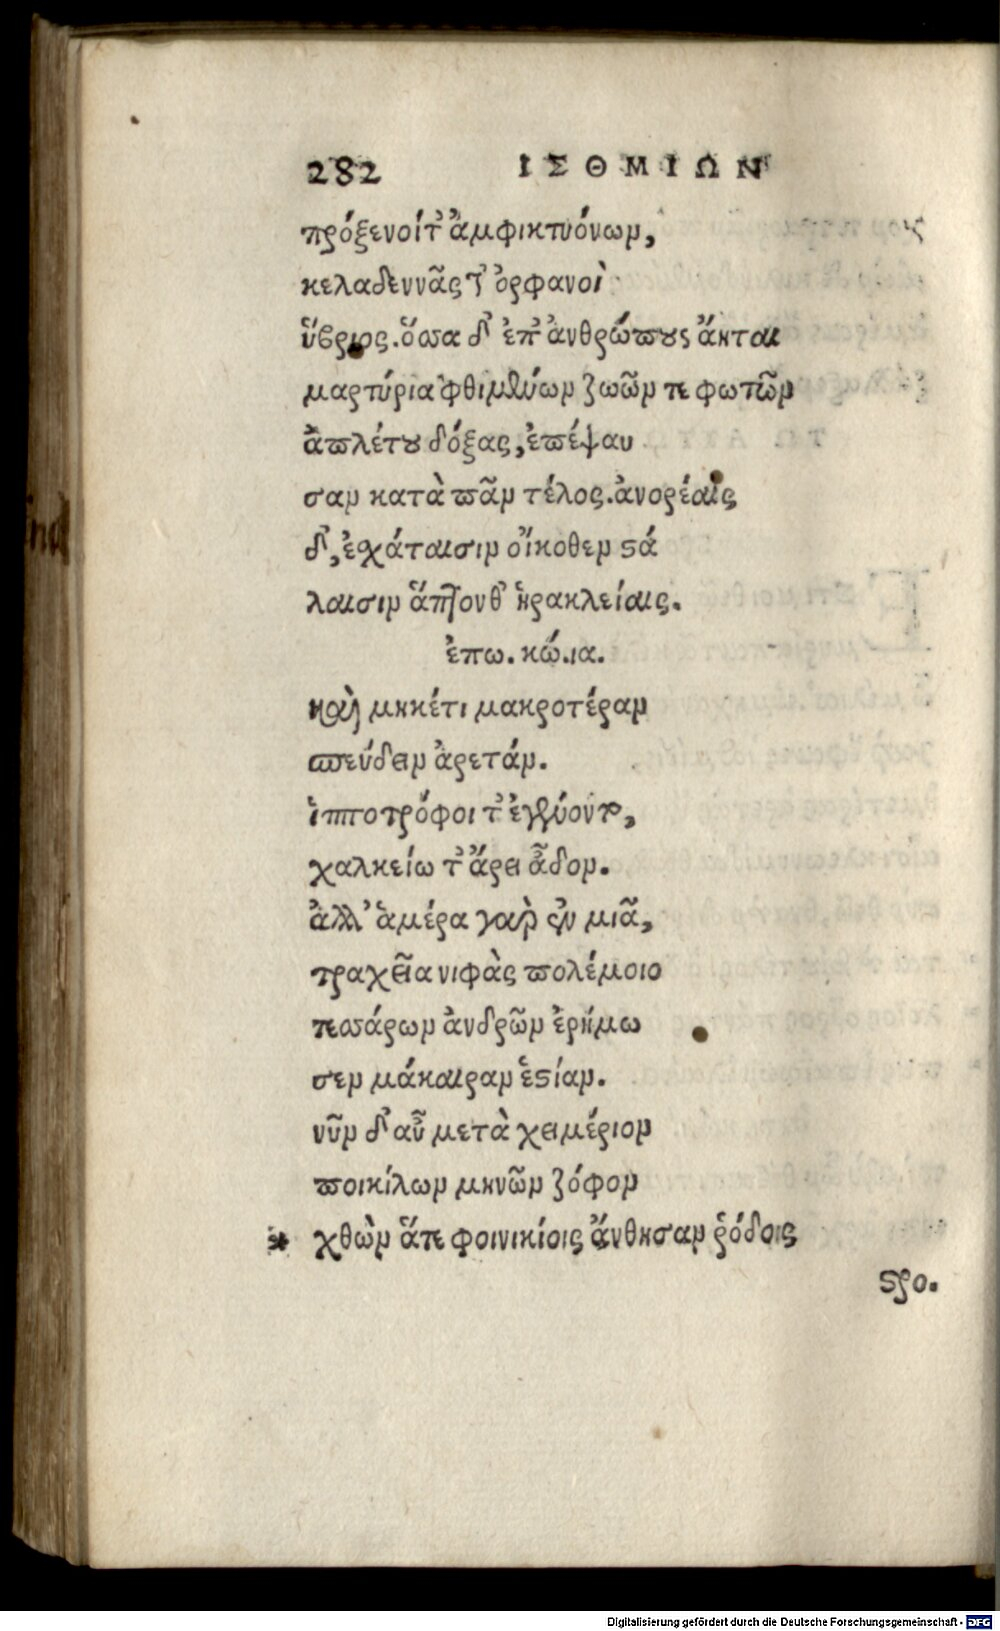 282 ΙΣΘΜΙΩΝ
πρόξενοίτ' ἀμφικτυόνων,
κελαδεννᾶς τ' ὀρφανοὶ
ὕβριος. ὅσσα δ' ἐπ' ἀνθρώπους ἄηται
μαρτύρια φθιμένων ζωῶν τε φωτῶν
ἀπλέτου δόξας, ἐπέψαυ
σαν κατὰ πᾶν τέλος. ἀνορέαις
δ', ἐχάταισιν οἴκοθεν στά
λαισιν ἅπτονθ' ἡρακλείαις.
ἐπω. κώ. ια.
καὶ μηκέτι μακροτέραν
σπεύδειν ἀρετάν.
ἱπποτρόφοι τ' ἐγένοντο,
χαλκείω τ' ἄρει ἆδον.
ἀλλ' ἁμέρα γὰρ ἐν μιᾶ,
τραχεῖα νιφὰς πολέμοιο
τεσσάρων ἀνδρῶν ἐρήμω
σεν μάκαιραν ἑστίαν.
νῦν δ' αὖ μετὰ χειμέριον
ποικίλων μηνῶν ζόφον
* χθὼν ἅτε φοινικίοις ἄνθησαν ῥόδοις
στρο.
Digitalisierung gefördert durch die Deutsche Forschungsgemeinschaft - DFG